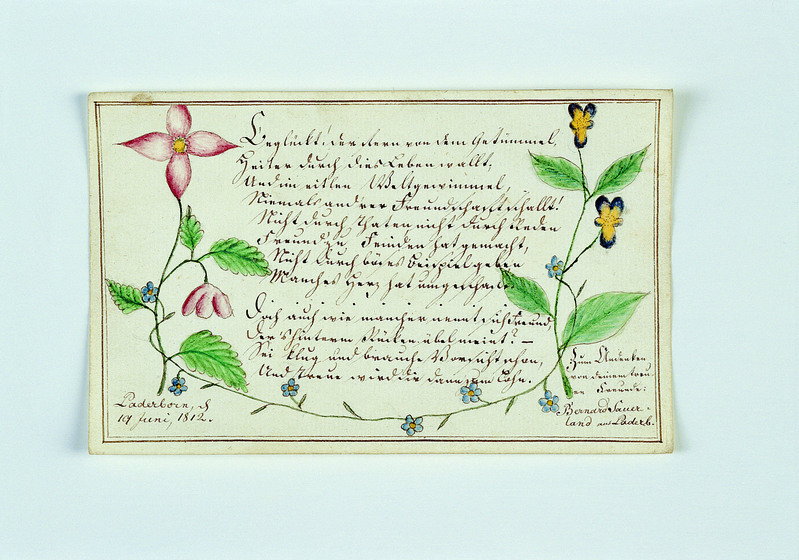 Beglückt! der fern von dem Getümmel,
Heiter durch dies Leben wallt,
Und im eitlen Weltgewimmel,
Niemals andrer Freundschaft schallt!
Nicht durch Thaten nicht durch Reden
Freund zu Feinden hat gemacht,
Nicht durch böses Beispiel geben
Manches Herz hat umgeschaft.
Doch auch wie mancher nennt sich Freund
Der's hinterm Rücken übel meint? –
Sei klug und brauche Vorsicht schon,
Und Treue wird dir dann zum Lohn.
Paderborn, d
19 Juni, 1812.
Zum Andenken
von deinem treu-
en Freunde:
Bernard Sauer-
land aus Paderb.